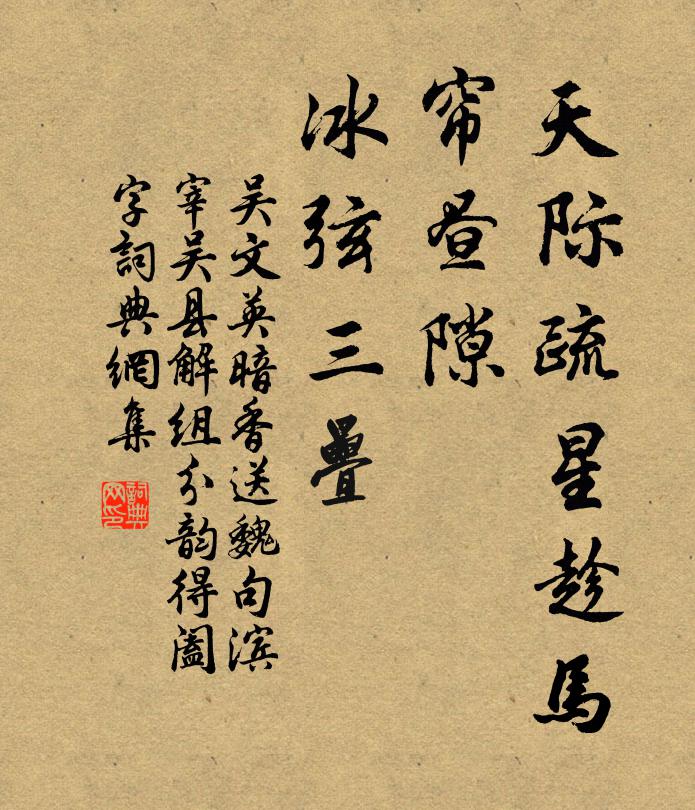 天际疏星趁馬
帘昼隙
冰弦三疊
吴文英暗香送魏句滨
宰吴县解组分韵得阖
字詞典網集
詞典
网印